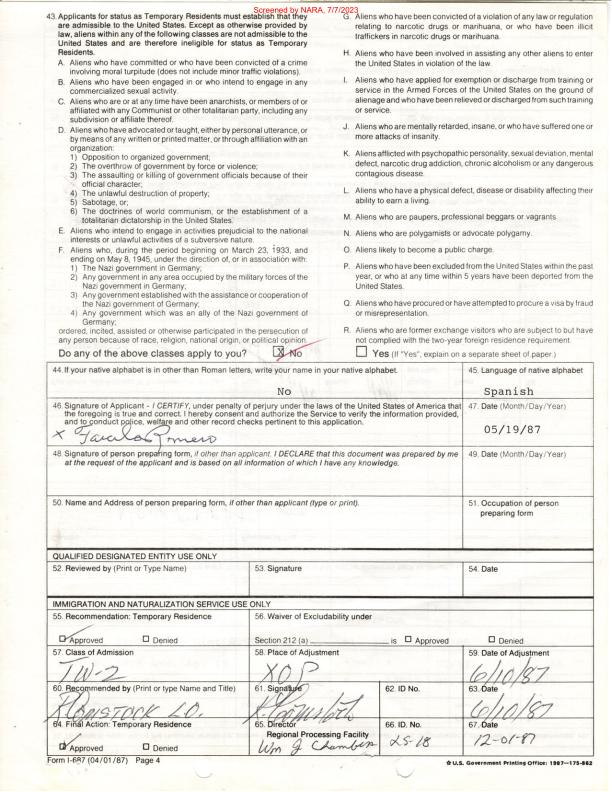 Screened by NARA, 7/7/2023
43. Applicants for status as Temporary Residents must establish that they
are admissible to the United States. Except as otherwise provided by
law, aliens within any of the following classes are not admissible to the
United States and are therefore ineligible for status as Temporary
Residents.
A. Aliens who have committed or who have been convicted of a crime
involving moral turpitude (does not include minor traffic violations).
B. Aliens who have been engaged in or who intend to engage in any
commercialized sexual activity.
C. Aliens who are or at any time have been anarchists, or members of or
affiliated with any Communist or other totalitarian party, including any
subdivision or affiliate thereof.
D. Aliens who have advocated or taught, either by personal utterance, or
by means of any written or printed matter, or through affiliation with an
organization:
1) Opposition to organized government;
2) The overthrow of government by force or violence;
3) The assaulting or killing of government officials because of their
official character;
4) The unlawful destruction of property;
5) Sabotage, or;
6) The doctrines of world communism, or the establishment of a
totalitarian dictatorship in the United States.
E. Aliens who intend to engage in activities prejudicial to the national
interests or unlawful activities of a subversive nature.
F. Aliens who, during the period beginning on March 23, 1933, and
ending on May 8, 1945, under the direction of, or in association with:
1) The Nazi government in Germany;
2) Any government in any area occupied by the military forces of the
Nazi government in Germany;
3) Any government established with the assistance or cooperation of
the Nazi government of Germany;
4) Any government which was an ally of the Nazi government of
Germany;
ordered, incited, assisted or otherwise participated in the persecution of
any person because of race, religion, national origin, or political opinion.
G. Aliens who have been convicted of a violation of any law or regulation
relating to narcotic drugs or marihuana, or who have been illicit
traffickers in narcotic drugs or marihuana.
H. Aliens who have been involved in assisting any other aliens to enter
the United States in violation of the law.
I. Aliens who have applied for exemption or discharge from training or
service in the Armed Forces of the United States on the ground of
alienage and who have been relieved or discharged from such training
or service.
J. Aliens who are mentally retarded, insane, or who have suffered one or
more attacks of insanity.
K. Aliens afflicted with psychopathic personality, sexual deviation, mental
defect, narcotic drug addiction, chronic alcoholism or any dangerous
contagious disease.
L. Aliens who have a physical defect, disease or disability affecting their
ability to earn a living.
M. Aliens who are paupers, professional beggars or vagrants.
N. Aliens who are polygamists or advocate polygamy.
O. Aliens likely to become a public charge.
P. Aliens who have been excluded from the United States within the past
year, or who at any time within 5 years have been deported from the
United States.
Q. Aliens who have procured or have attempted to procure a visa by fraud
or misrepresentation.
R. Aliens who are former exchange visitors who are subject to but have
not complied with the two-year foreign residence requirement.
Do any of the above classes apply to you? X No Yes (If "Yes", explain on a separate sheet of paper.)
44. If your native alphabet is in other than Roman letters, write your name in your native alphabet.
No
45. Language of native alphabet
Spanish
46. Signature of Applicant - I CERTIFY, under penalty of perjury under the laws of the United States of America that
the foregoing is true and correct. I hereby consent and authorize the Service to verify the information provided,
and to conduct police, welfare and other record checks pertinent to this application.
X Romero
47. Date (Month/Day/Year)
05/19/87
48. Signature of person preparing form, if other than applicant. I DECLARE that this document was prepared by me
at the request of the applicant and is based on all information of which I have any knowledge.
49. Date (Month/Day/Year)
50. Name and Address of person preparing form, if other than applicant (type or print).
51. Occupation of person
preparing form
QUALIFIED DESIGNATED ENTITY USE ONLY
52. Reviewed by (Print or Type Name) 53. Signature 54. Date
IMMIGRATION AND NATURALIZATION SERVICE USE ONLY
55. Recommendation: Temporary Residence 56. Waiver of Excludability under
Approved Denied Section 212 (a) is Approved Denied
57. Class of Admission 58. Place of Adjustment 59. Date of Adjustment
TW-2 XOP 6/10/87
60. Recommended by (Print or type Name and Title) 61. Signature 62. ID No. 63. Date
R COMSTOCK L.O. R Comstock 6/10/87
64. Final Action: Temporary Residence 65. Director 66. ID. No. 67. Date
Regional Processing Facility
Approved Denied Wm J Chambers LS-18 12-01-87
Form I-687 (04/01/87) Page 4
☆ U.S. Government Printing Office: 1987—175-862